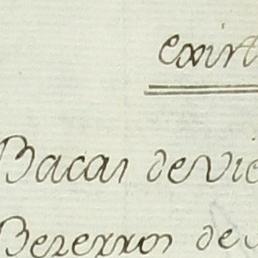 exist
Bacas de Vie
Bezerros de